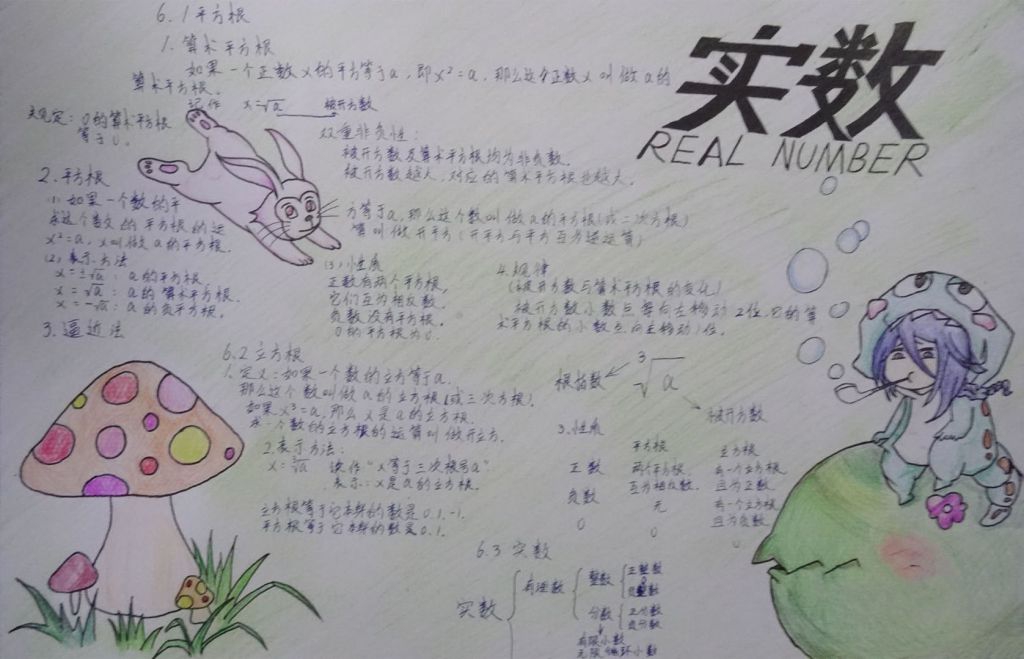 实数
REAL NUMBER
6.1平方根
1.算术平方根
如果一个正数x的平方等于a,即x²=a,那么这个正数x叫做a的
算术平方根.
记作 x=√a 被开方数
规定:0的算术平方根
等于0.
双重非负性:
被开方数及算术平方根均为非负数.
被开方数越大,对应的算术平方根也越大.
2.平方根
(1)如果一个数的平
方等于a,那么这个数叫做a的平方根(或二次方根)
求这个数的平方根的运
算叫做开平方(开平方与平方互为逆运算)
x²=a,x叫做a的平方根.
(2)表示方法
x=±√a:a的平方根
x=√a:a的算术平方根.
x=-√a:a的负平方根.
(3)性质
正数有两个平方根,
它们互为相反数.
负数没有平方根.
0的平方根为0.
4.规律
(被开方数与算术平方根的变化)
被开方数小数点每向左移动2位,它的算
术平方根的小数点向左移动1位.
3.逼近法
6.2立方根
1.定义:如果一个数的立方等于a.
那么这个数叫做a的立方根(或三次方根).
如果x³=a,那么x是a的立方根.
求一个数的立方根的运算叫做开立方.
2.表示方法:
x=³√a 读作"x等于三次根号a"
表示:x是a的立方根.
立方根等于它本身的数是0,1,-1.
平方根等于它本身的数是0,1.
根指数 ³√a
被开方数
3.性质
平方根 立方根
正数 两个平方根, 有一个立方根
互为相反数. 且为正数.
负数 无 有一个立方根
且为负数.
0 0 0
6.3 实数
实数 有理数 整数 正整数
0
负整数
分数 正分数
负分数
有限小数
无限循环小数